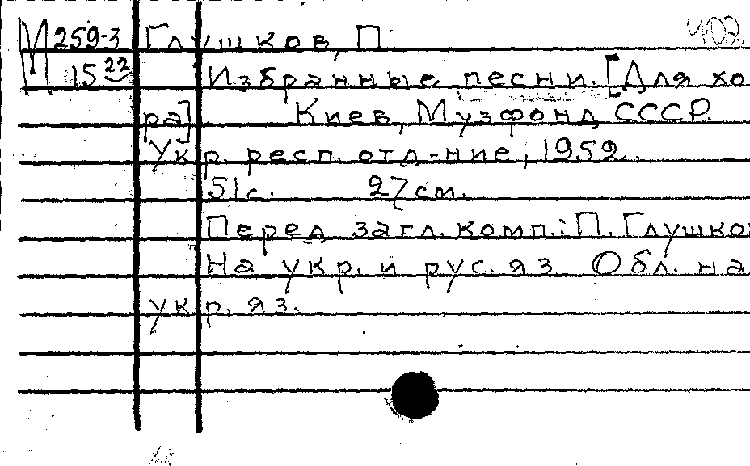 М 259-3 Глушков, П. 402.
15 22 Избранные песни. [Для хо
ра] Киев, Музфонд СССР.
Укр. респ. отд-ние, 1959.
51 с. 27 см.
Перед загл. комп.: П. Глушков
На укр. и рус. яз. Обл. на
укр. яз.